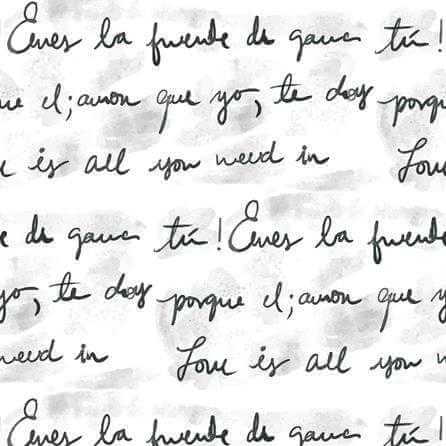 Eres la fuente de gana tú!
ue el; amor que yo, te doy porqu
e is all you need in Love
e de gana tú! Eres la fuente
yo, te doy porque el; amor que y
need in Love is all you n
Eres la fuente de gana tú!